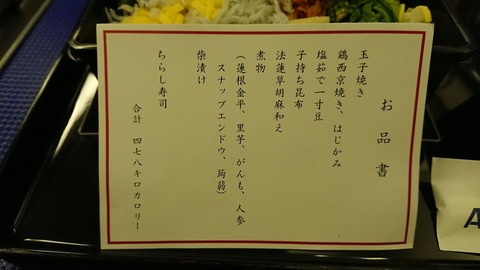 お品書
玉子焼き
鶏西京焼き、はじかみ
塩茹で一寸豆
子持ち昆布
法蓮草胡麻和え
煮物
（蓮根金平、里芋、がんも、人参
スナップエンドウ、蒟蒻）
柴漬け
ちらし寿司
合計 四七八キロカロリー
A